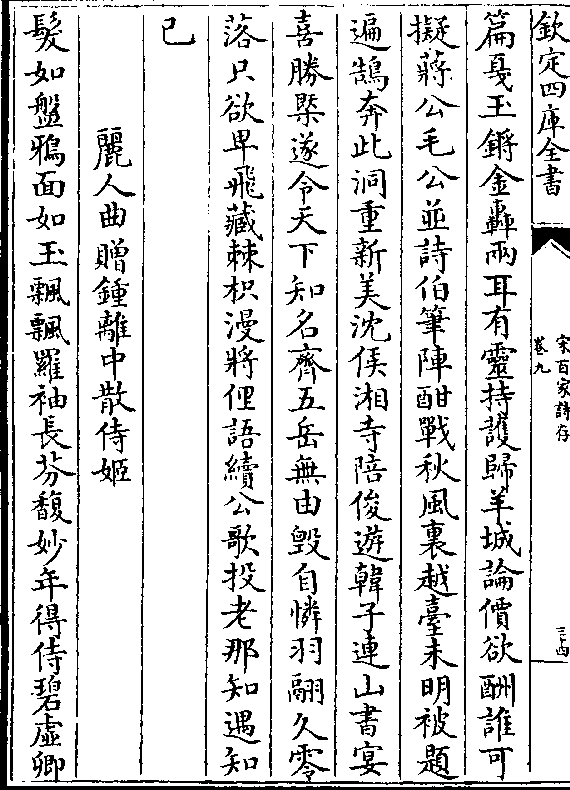 欽定四庫全書
宋百家詩存
卷九
三四
篇戛玉鏘金轟兩耳有靈持護歸羊城論價欲酬誰可
擬蔣公毛公並詩伯筆陣酣戰秋風裏越臺未明被題
遍鵠奔此洞重新美沈侯湘寺陪俊遊韓子連山書宴
喜勝槩遂令天下知名齊五岳無由毀自憐羽翮久零
落只欲卑飛藏棘枳漫將俚語續公歌投老那知遇知
已
麗人曲贈鍾離中散侍姬
髮如盤鴉面如玉飄飄羅袖長芬馥妙年得侍碧虛卿